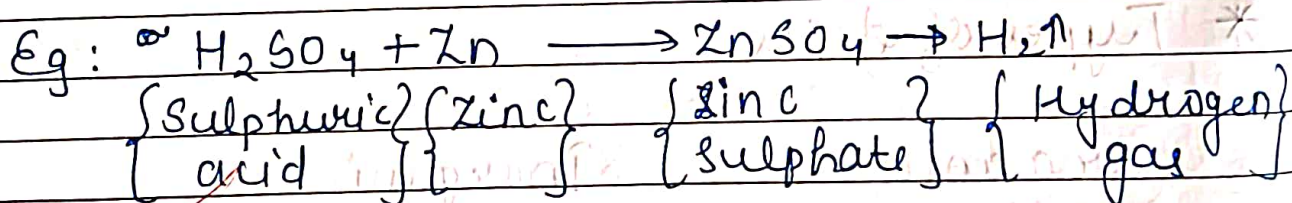 Eg: H₂SO₄ + Zn ⟶ ZnSO₄ → H₂↑
{Sulphuric acid} {Zinc} {Zinc sulphate} {Hydrogen gas}